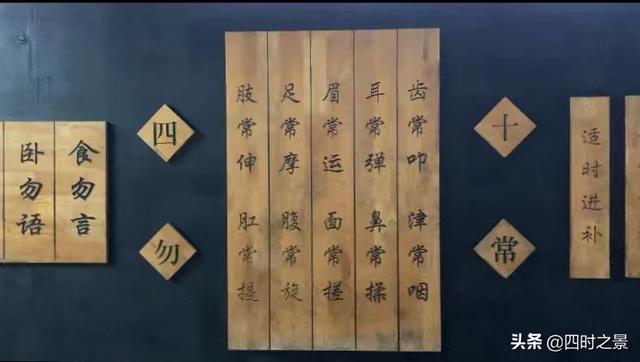 适时进补
十常
齿常叩 津常咽
耳常弹 鼻常揉
眉常运 面常搓
足常摩 腹常旋
肢常伸 肛常提
四勿
食勿言
卧勿语
头条 @四时之景